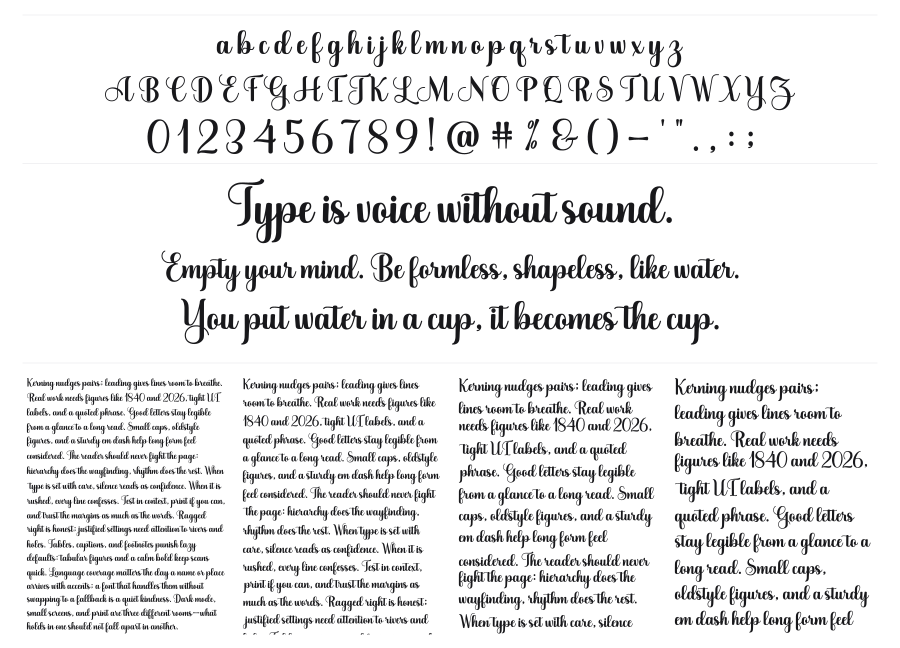 a b c d e f g h i j k l m n o p q r s t u v w x y z
A B C D E F G H I J K L M N O P Q R S T U V W X Y Z
0 1 2 3 4 5 6 7 8 9 ! @ # % & ( ) - ' " . , : ;
Type is voice without sound.
Empty your mind. Be formless, shapeless, like water.
You put water in a cup, it becomes the cup.
Kerning nudges pairs; leading gives lines room to breathe.
Real work needs figures like 1840 and 2026, tight UI
labels, and a quoted phrase. Good letters stay legible
from a glance to a long read. Small caps, oldstyle
figures, and a sturdy em dash help long form feel
considered. The reader should never fight the page:
hierarchy does the wayfinding, rhythm does the rest. When
type is set with care, silence reads as confidence. When it is
rushed, every line confesses. Test in context, print if you can,
and trust the margins as much as the words. Ragged
right is honest; justified settings need attention to rivers and
holes. Tables, captions, and footnotes punish lazy
defaults: tabular figures and a calm bold keep scans
quick. Language coverage matters the day a name or place
arrives with accents; a font that handles them without
swapping to a fallback is a quiet kindness. Dark mode,
small screens, and print are three different rooms—what
holds in one should not fall apart in another.
Kerning nudges pairs; leading gives lines
room to breathe. Real work needs figures like
1840 and 2026, tight UI labels, and a
quoted phrase. Good letters stay legible from
a glance to a long read. Small caps, oldstyle
figures, and a sturdy em dash help long form
feel considered. The reader should never fight
the page: hierarchy does the wayfinding,
rhythm does the rest. When type is set with
care, silence reads as confidence. When it is
rushed, every line confesses. Test in context,
print if you can, and trust the margins as
much as the words. Ragged right is honest;
justified settings need attention to rivers and
Kerning nudges pairs; leading gives
lines room to breathe. Real work
needs figures like 1840 and 2026,
tight UI labels, and a quoted
phrase. Good letters stay legible
from a glance to a long read. Small
caps, oldstyle figures, and a sturdy
em dash help long form feel
considered. The reader should never
fight the page: hierarchy does the
wayfinding, rhythm does the rest.
When type is set with care, silence
Kerning nudges pairs;
leading gives lines room to
breathe. Real work needs
figures like 1840 and 2026,
tight UI labels, and a
quoted phrase. Good letters
stay legible from a glance to a
long read. Small caps,
oldstyle figures, and a sturdy
em dash help long form feel